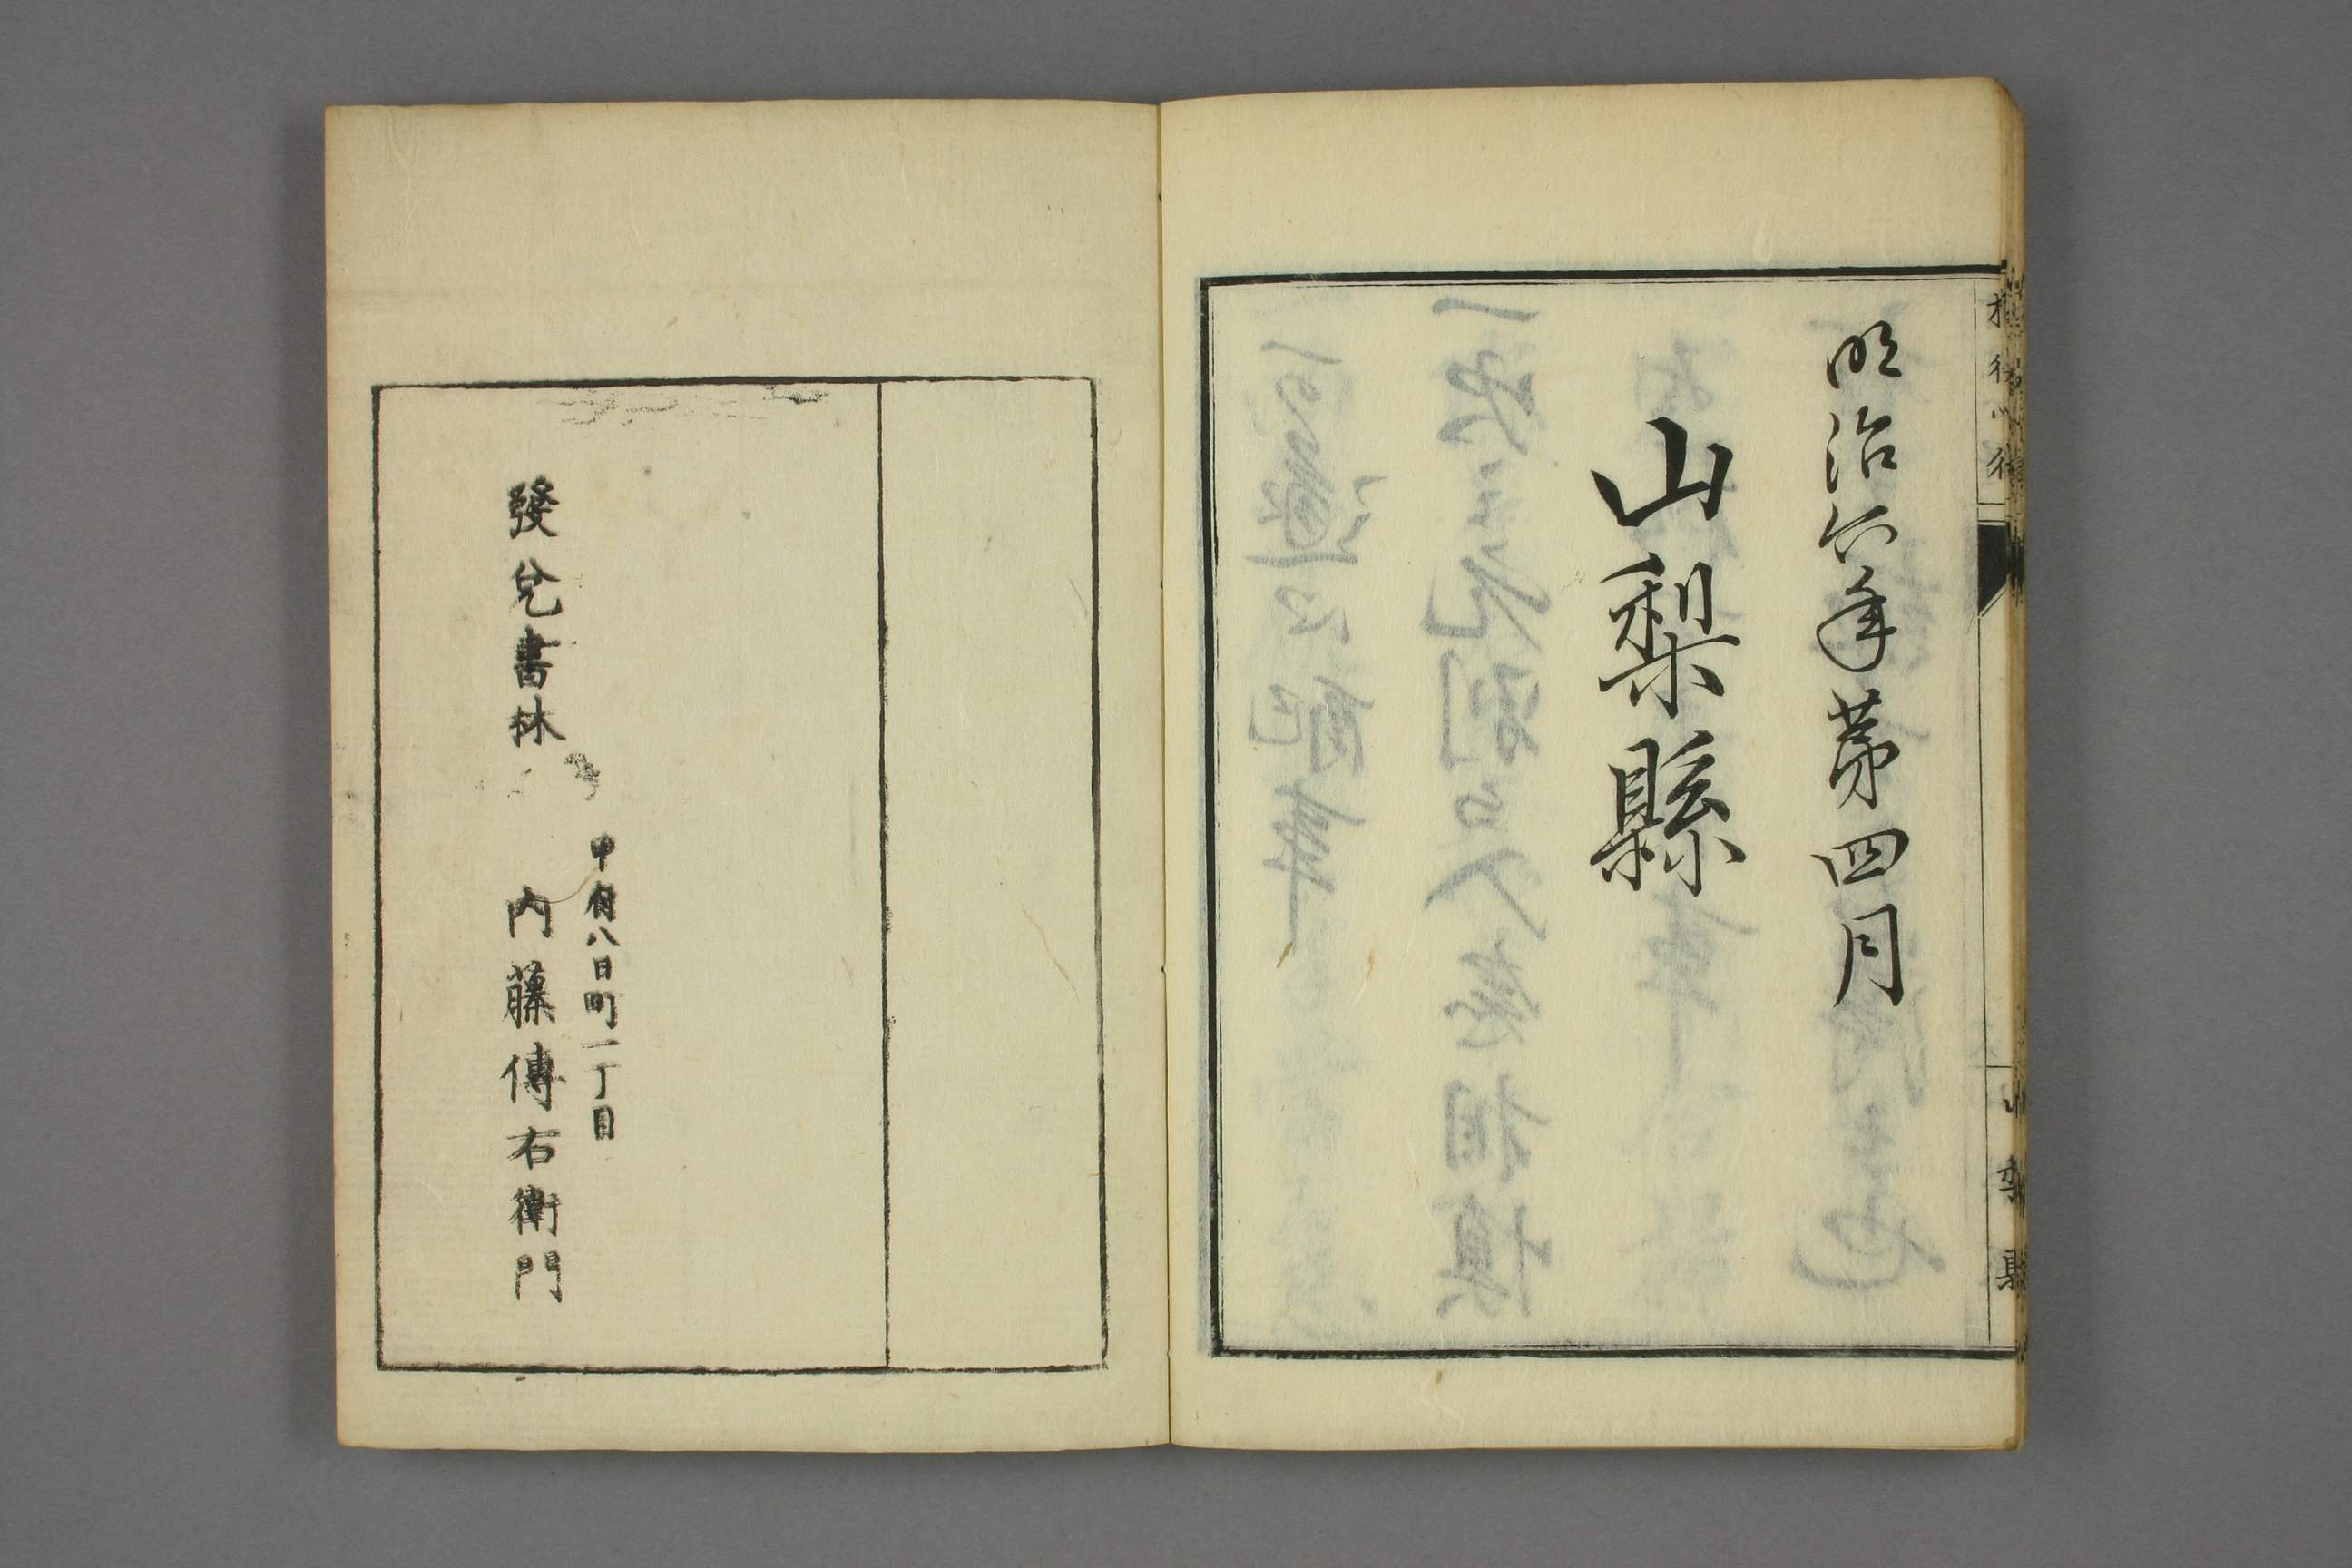 明治六年第四月
山梨縣
甲府八日町一丁目
發兌書林 内藤傳右衛門
山梨縣